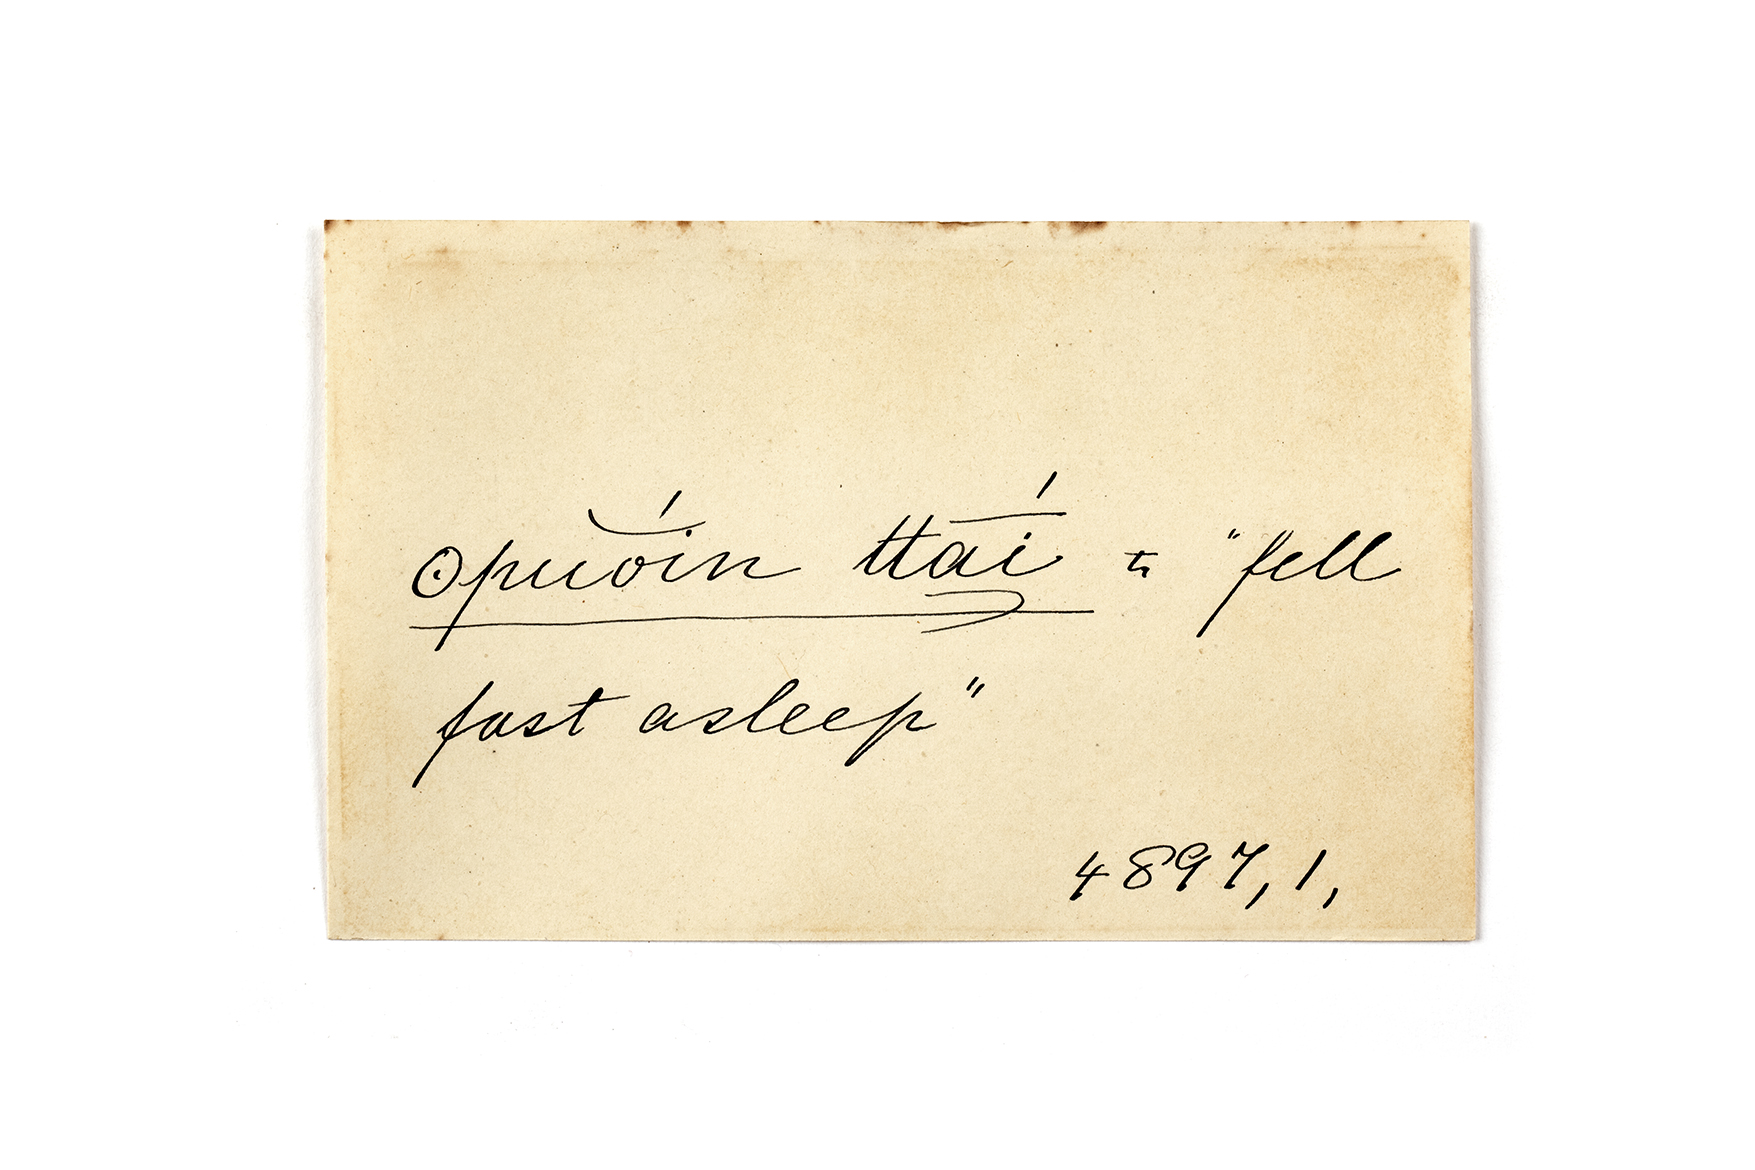 opŭóin ttāí = "fell
fast asleep"
4897, 1,